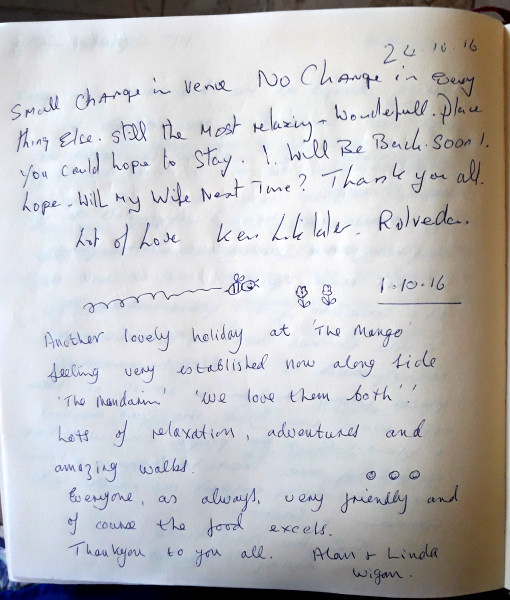 24.10.16
Small Change in venue No Change in Every
thing Else. still the most relaxing + Wonderfull. Place
You Could hope to Stay. I. Will Be Back. Soon I.
hope. Will My Wife Next Time? Thank you all.
Lot of Love Ken
1.10.16
Another lovely holiday at 'The Mango'
feeling very established now along side
'The Mandarin' 'We love them both'!
Lots of relaxation, adventures and
amazing walks.
Everyone, as always, very friendly and
of course the food excels.
Thankyou to you all. Alan + Linda
Wigan.